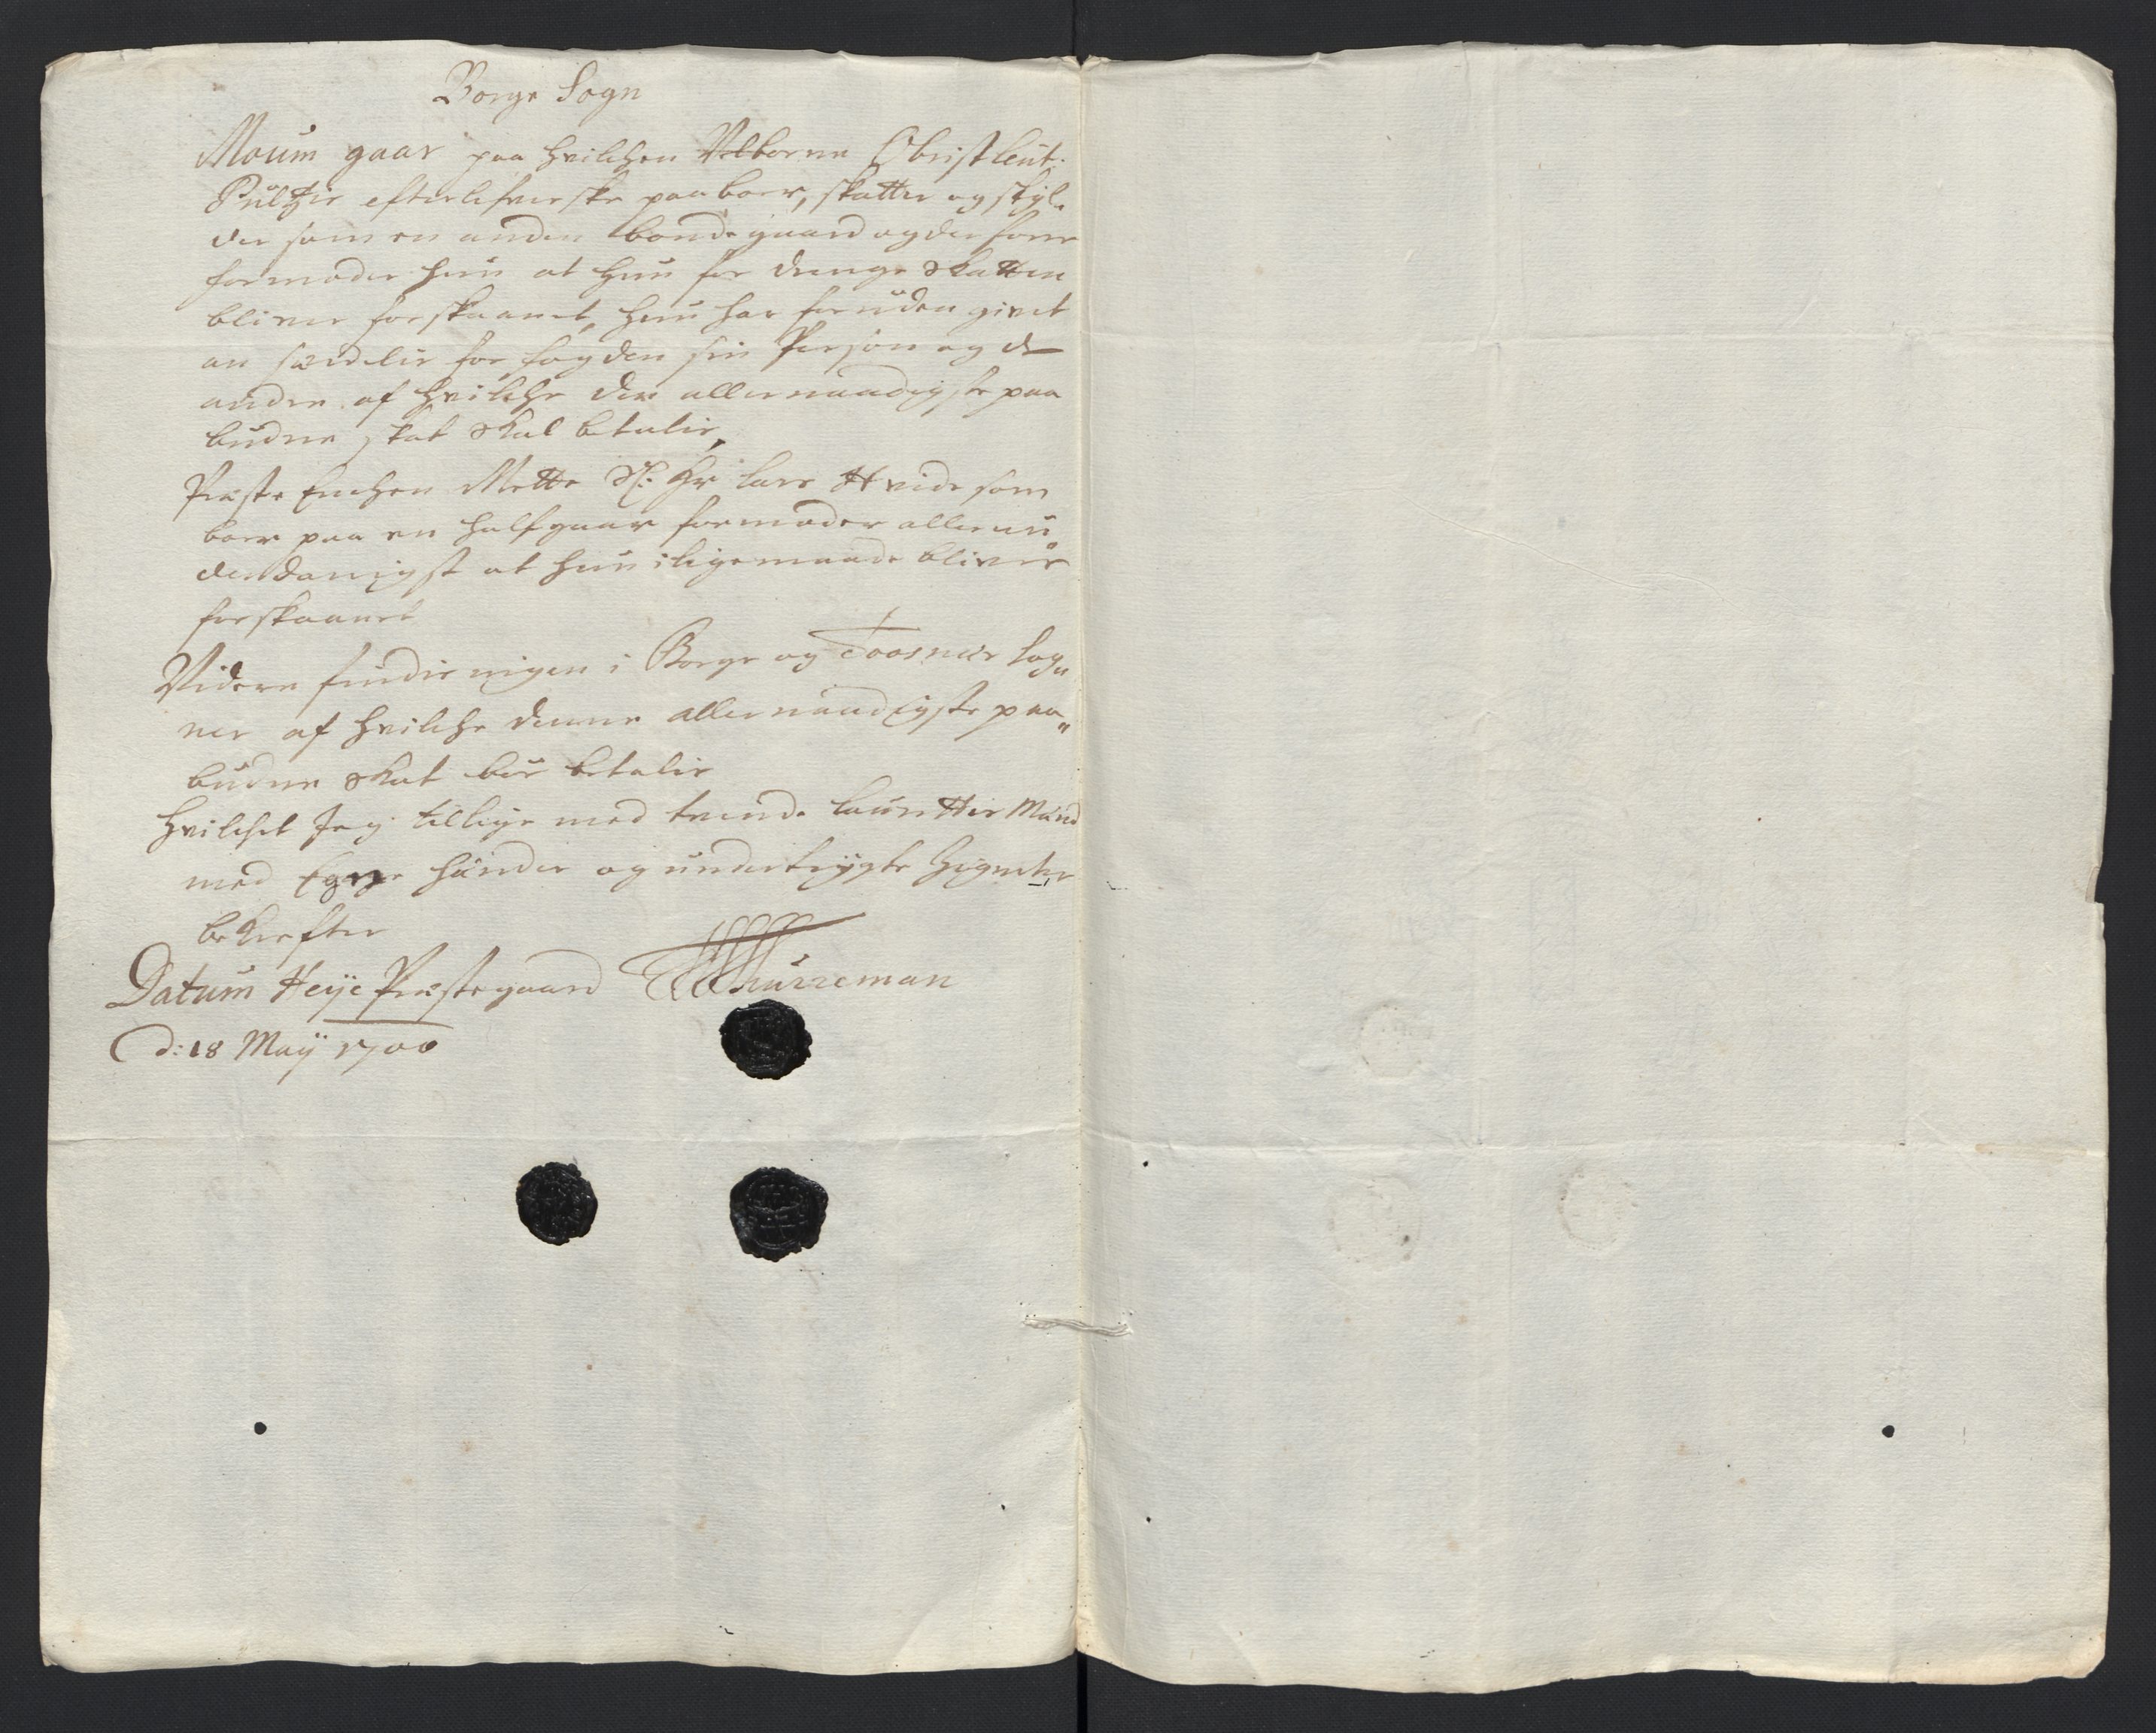 Borge Sogn
Moum gaar paa hvilchen Velborne Obristleut:
Pultzis efterlefverske paaboer, skatter og skyl„
der som en anden bondegaard og der fore
formoder hun at hun for denge skatten
bliver forskaanet, hun har foruden givet
an særdelis for fogden sin Person og de
andre af hvilche der allernaadigste paa
budne skat skal betalis,
Præste Enchen Mette Sl: Hr Lars Hvids som
boer paa en half gaar formoder allerun„
derdanigst at hun iligemaade bliver
forskaanet
Videre findis ingen i Borge og Toosnæs Sog„
ner af hvilche denne allernaadigste paa„
budne skat bør betalis
Hvilchet Jeg tillige med tvende Laurettis Mænd
med Egne hænder og undertrygte Zigneter
bekrefter
Datum Heije Præstegaard
d: 18 Maij 1700